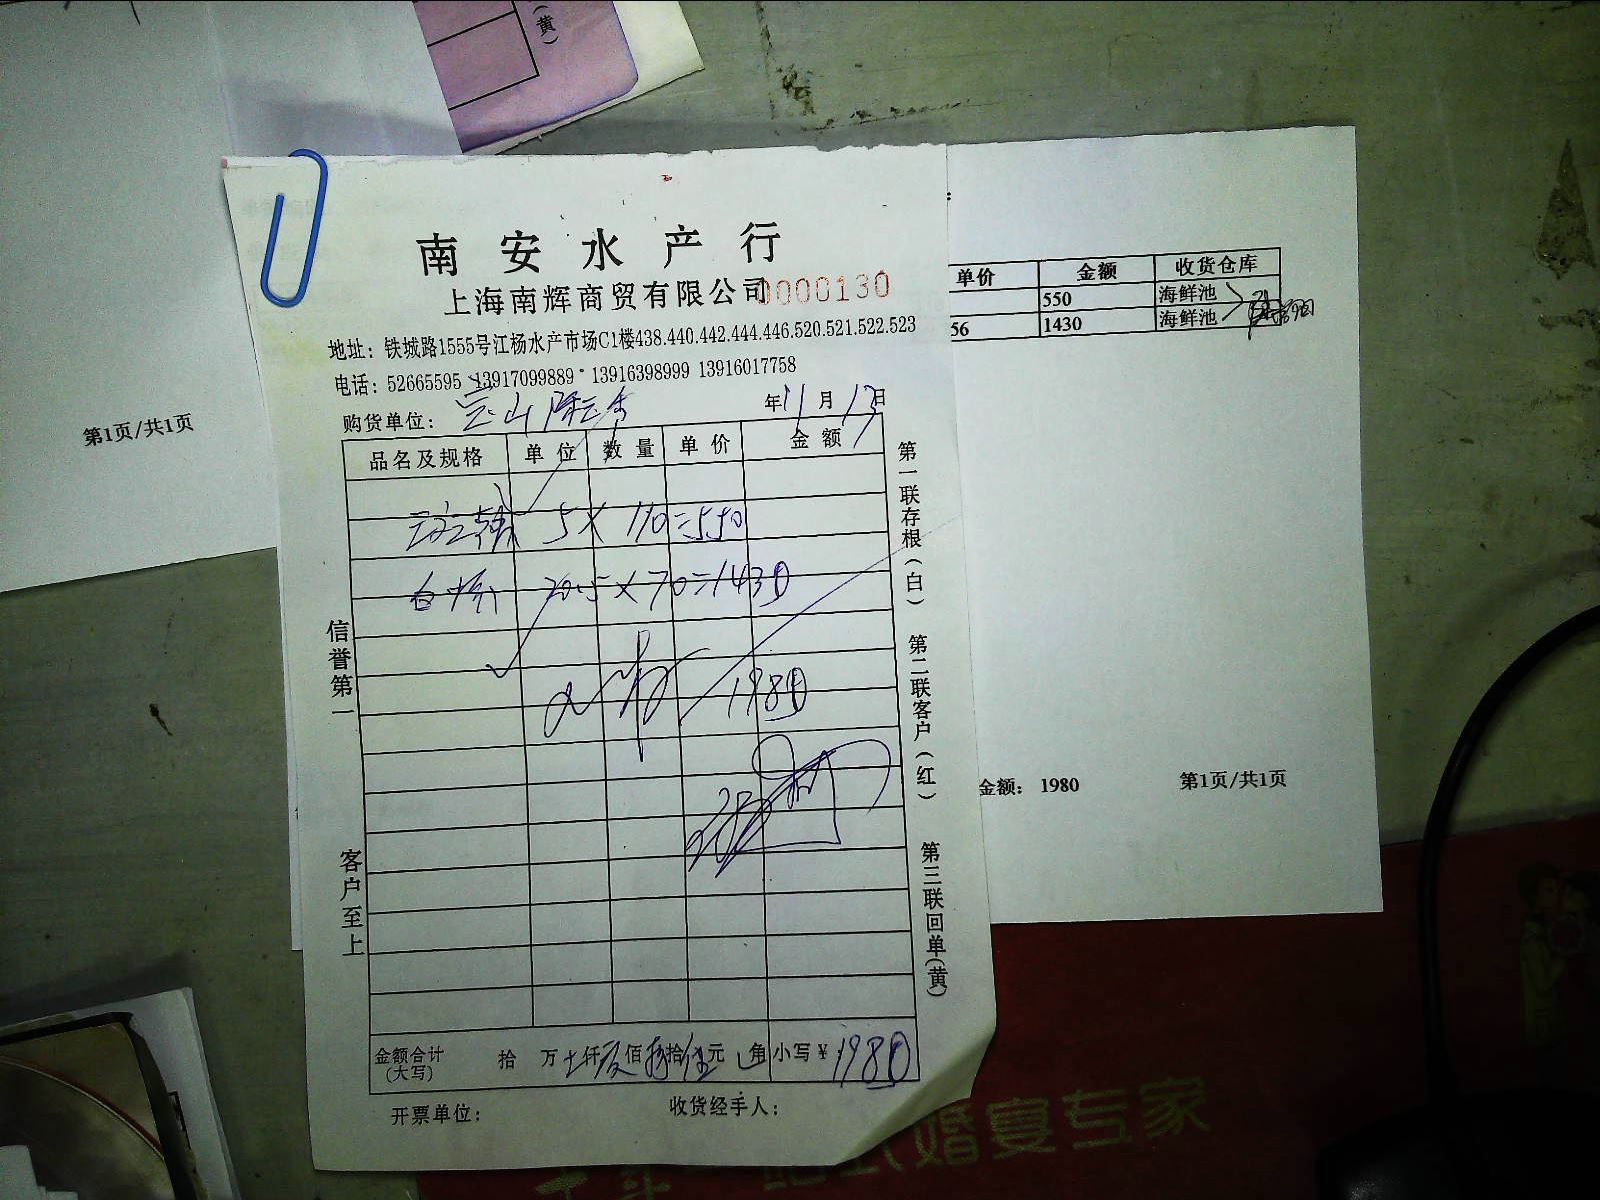 （黄）
南安水产行
上海南辉商贸有限公司 0000130
地址：铁城路1555号江杨水产市场C1楼438.440.442.444.446.520.521.522.523
电话：52665595 13917099889 13916398999 13916017758
购货单位： 年11月13日
品名及规格 单位 数量 单价 金额
5 × 110=550
20.5 × 70=1430
1980
金额合计(大写) 拾 万 仟 佰 拾 元 角 小写￥ 1980
开票单位： 收货经手人：
信誉第一
客户至上
第一联存根（白）
第二联客户（红）
第三联回单（黄）
单价 金额 收货仓库
550 海鲜池
56 1430 海鲜池
金额： 1980 第1页/共1页
第1页/共1页
婚宴专家